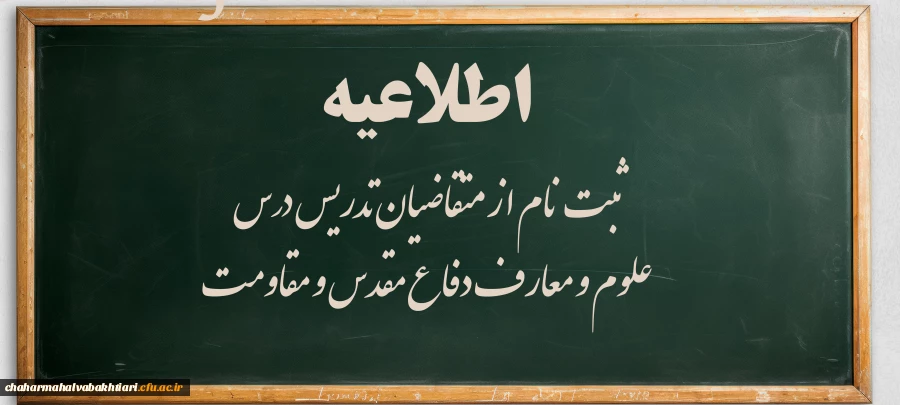 اطلاعیه
ثبت نام از متقاضیان تدریس درس
علوم و معارف دفاع مقدس و مقاومت
chaharmahalvabakhtiari.cfu.ac.ir